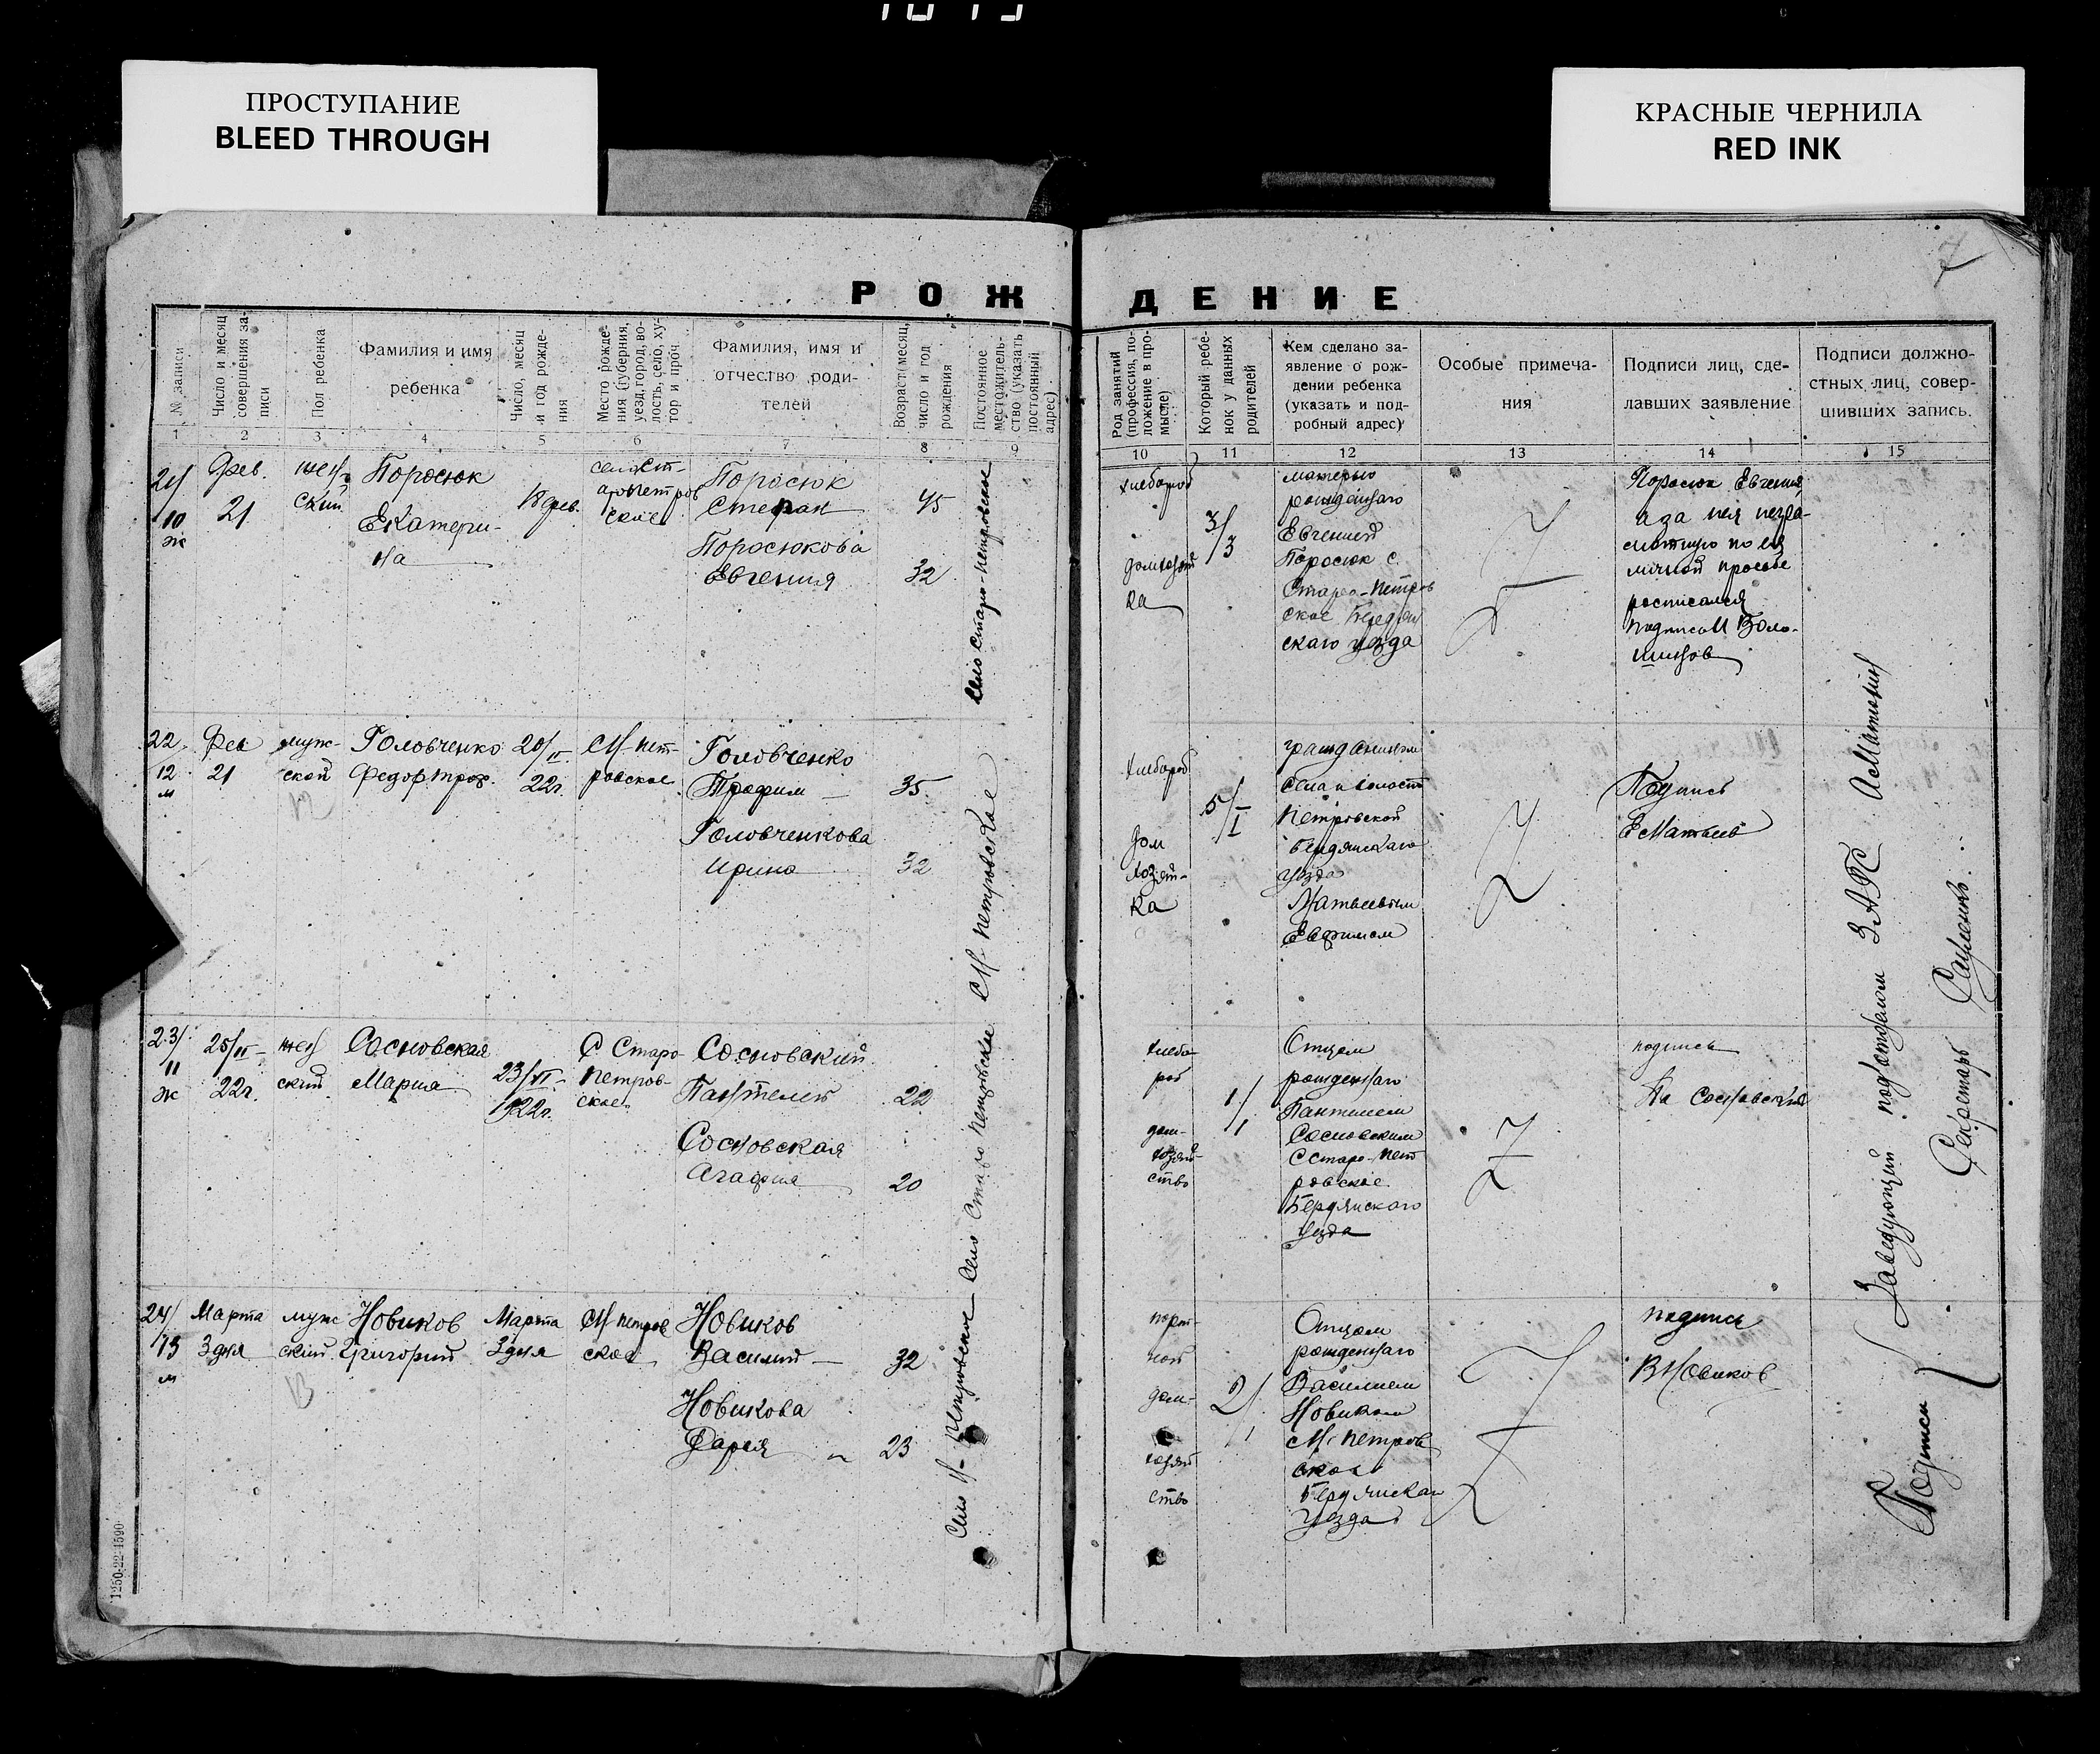 ПРОСТУПАНИЕ
BLEED THROUGH
КРАСНЫЕ ЧЕРНИЛА
RED INK
7
РОЖДЕНИЕ
№ записи
Число и месяц
совершения за-
писи
Пол ребенка
Фамилия и имя
ребенка
Число, месяц
и год рожде-
ния
Место рожде-
ния (губерния,
уезд, город, во-
лость, село, ху-
тор и проч
Фамилия, имя и
отчество роди-
телей
Возраст (месяц,
число и год
рождения
Постоянное
местожитель-
ство (указать
постоянный
адрес)
Род занятий
(профессия, по-
ложение в про-
мысле)
Который ребе-
нок у данных
родителей
Кем сделано за-
явление о рож-
дении ребенка
(указать и под-
робный адрес)
Особые примеча-
ния
Подписи лиц, сде-
лавших заявление
Подписи должно-
стных лиц, совер-
шивших запись.
1 2 3 4 5 6 7 8 9 10 11 12 13 14 15
21/
10
ж
Фев.
21
жен-
ский
Поросюк
Екатери-
на
18 фев.
село Ст-
аропетров
ское
Поросюк
Стефан
45
Поросюкова
Евгения
32
село старо-петровское
хлебороб
домхозяй
ка
3/3
матерью
рожденного
Евгенией
Поросюк с.
Старо-Петров
ское Бердян
скаго уезда
Поросюк Евгения,
а за нея негра-
мотную по ея
личной просьбе
росписался
подписал Воло-
шинов
22
12
м
Фев
21
муж-
ской
Головченко
Федор Троф.
20/II
22г.
с Н-Пет-
ровское
Головченко
Трофим
35
Головченкова
Ирина
32
с Н-петровское
хлебороб
дом
хозяй-
ка
5/I
гражданином
села и волости
Петровской
Бердянскаго
уезда
Матвеевым
Ефимом
Подпись
Е Матвеев
23/
11
ж
25/II
22г.
жен
ский
Сосновская
Мария
23/VI
1922г.
С Старо
петров-
ское
Сосновский
Пантелей
22
Сосновская
Агафия
20
Село Старо петровское
хлебо
роб
дом-
хозяй-
ство
1/1
Отцем
рожденнаго
Пантилеем
Сосновским
С Старо-Пет
ровское
Бердянского
уезда
подпись
Па Сосновский
24/
13
м
Марта
3 дня
муж
ский
Новиков
Григорий
Марта
3 дня
с Н петров
ское
Новиков
Василий
32
Новикова
Дария
23
Село Н-петровское
порт-
ной
дом-
хозяй
ство
2/1
Отцем
рожденнаго
Василием
Новиков
с Н-петров
ское
Бердянскаго
уезда
подпись
В Новиков
Подписи
Заведующий подотделом ЗАГС А Мамонтин
Секретарь Саценко
1250-22-1590